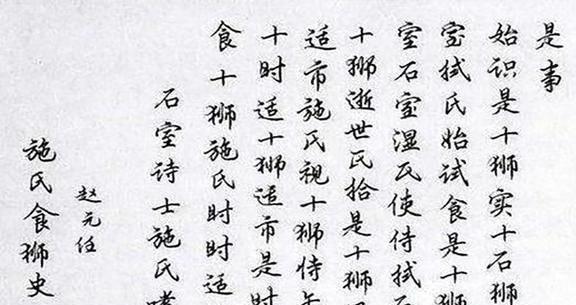 施氏食狮史
赵元任
石室诗士施氏嗜
食十狮施氏时时适
十时适十狮适市是时
适市施氏视十狮侍
十狮逝世氏拾是十狮
室石室湿氏使侍拭石
室拭氏始试食是十狮
始识是十狮实十石狮
是事